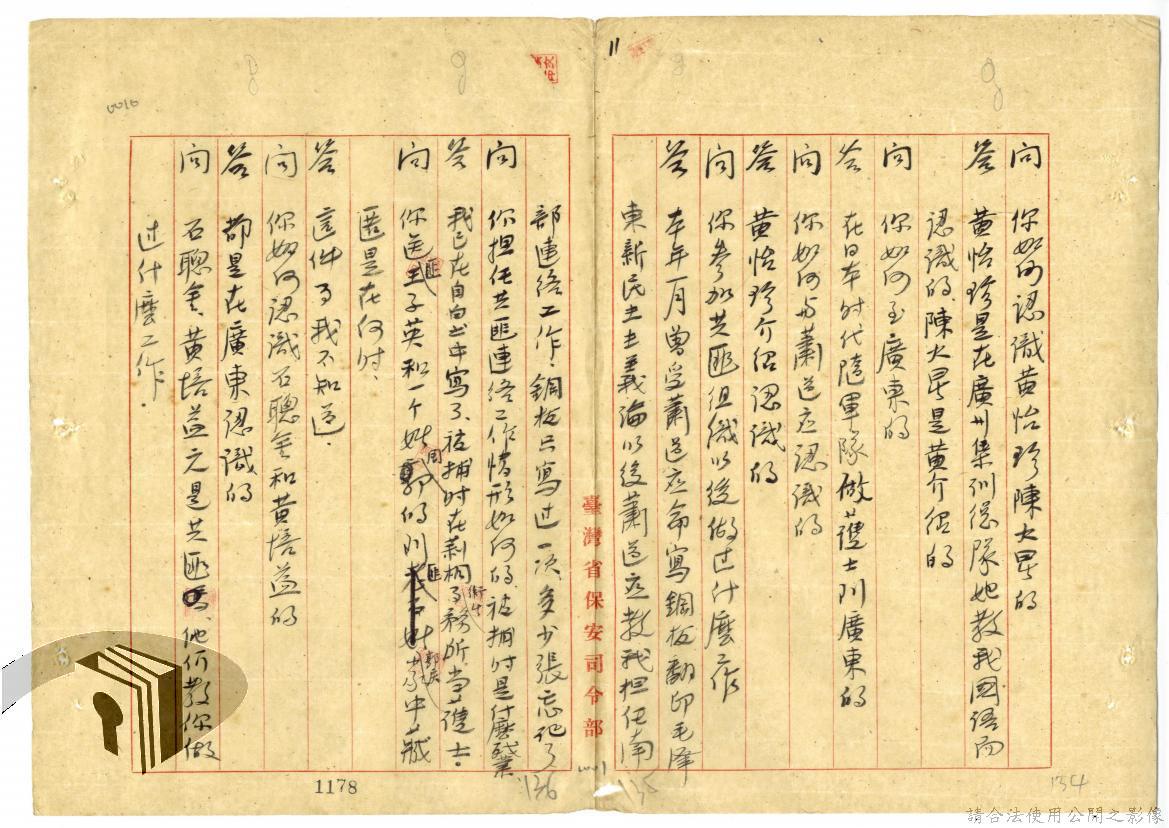 11
問 你如何認識黃怡珍陳大昃的
答 黃怡珍是在廣州集訓總隊她教我國語而
認識的、陳大昃是黃介紹的
問 你如何至廣東的
答 在日本时代隨軍隊做護士到廣東的
問 你如何与蕭道应認識的
答 黃怡珍介绍認識的
問 你參加共匪组織以後做过什麼工作
答 本年一月曾受蕭道应命寫鋼板翻印毛澤
東新民主主義論以後蕭道应教我担任南
臺灣省保安司令部
部連络工作、鋼板只寫过一次、多少張忘记了
問 你担任共匪連络工作情形如何的、被捕时是什麼職業
答 我已在自白书中寫了、被捕时在莿桐衛生所当護士。
問 你送匪王子英和一个姓周的到匪姓家中藏
匿是在何时、
答 這件事我不知道、
問 你如何認識石聰金和黃培益的
答 都是在廣東認識的
問 石聰金、黃培益元是共匪、他们教你做
过什麼工作、
0016
1178
136
135
134
請合法使用公開之影像